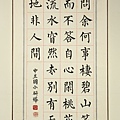 問余何事棲碧山笑
而不答心自閑桃花
流水窅然去別有天
地非人間